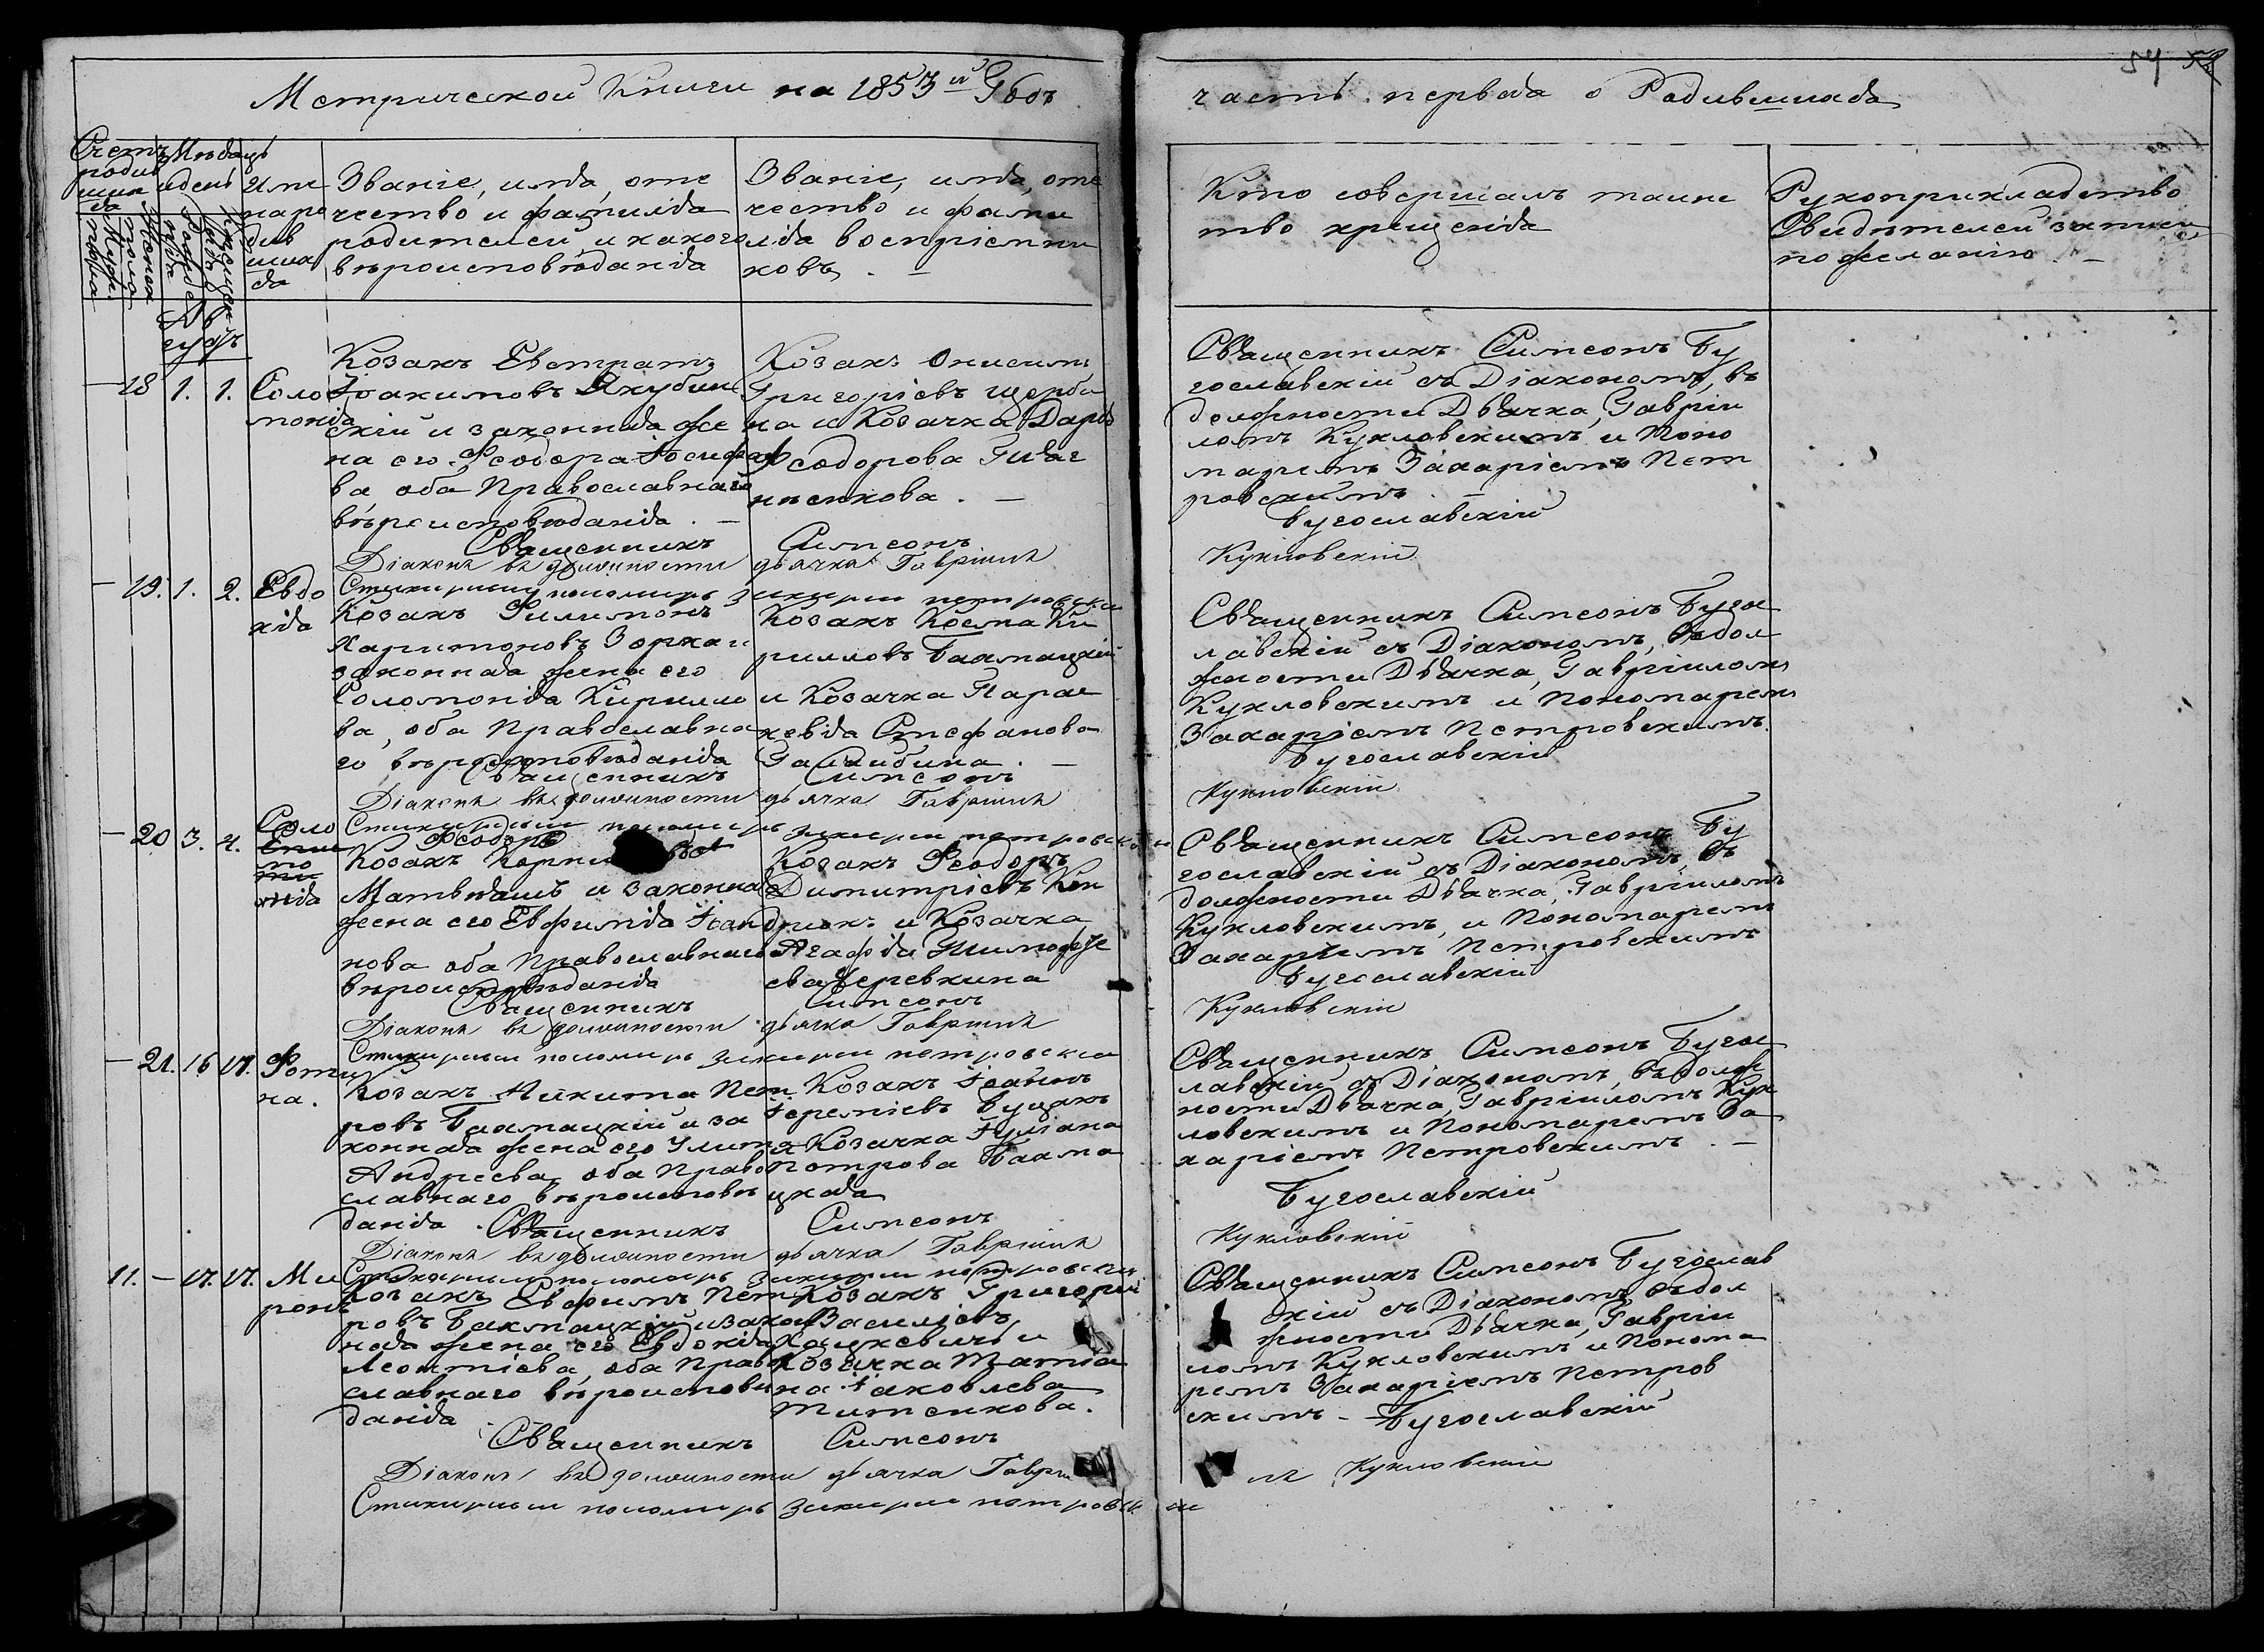 54
Метрической Книги на 1853й Годъ
часть первая о Родившихся
Счетъ родив шихся
мужеска
женска
Мѣсяцъ и день
рожде нія
крещенія
Име на роди вших ся
Званіе, имя, оте
чество, и фамилія
родителей, и какого
вѣроисповѣданія
Званіе, имя, оте
чество и фами
лія воспріемни
ковъ. —
Кто совершалъ таинс
тво крещенія
Рукоприкладство
Свидѣтелей записи
по желанію. —
18 1. 1. Соло
монія
Козакъ Евстратъ
Іоакимовъ Якубин
скій и законная же
на его Ѳеодора Іосифо
ва оба Православнаго
вѣроисповѣданія. —
Козакъ Онисимъ
Григоріевъ Щерби
на и Козачка Дарья
Ѳеодорова
нѣенкова. —
Священникъ Симеонъ Бу
гославскій съ Діакономъ, въ
должности Дьячка, Гаврiи
ломъ Кукловскимъ и Поно
маремъ Захаріемъ Пет
ровскимъ. —
Священникъ Симеонъ Бугославскій
Діаконъ въ должности дьячка Гавріилъ Кукловскій
Стихирный пономарь Захарій Петровскій
19. 1. 2. Евдо
кія
Козакъ Филимонъ
Харитоновъ Зорка и
законная жена его
Соломонія Кирилло
ва, оба Православна
го вѣроисповѣданія
Козакъ Косма Ки
рилловъ Бахмацкій
и Козачка Парас
кевія Стефанова
Галайбина. —
Священникъ Симеонъ Бугос
лавскій съ Діакономъ, въ дол
жности Дьячка, Гавріиломъ
Кукловскимъ и Пономаремъ
Захаріемъ Петровскимъ.
Священникъ Симеонъ Бугославскій
Діаконъ въ должности дьячка Гавріилъ Кукловскій
Стихирный пономарь Захарій Петровскій
20 3. 4. Соло
мо
нія
Ѳеодоръ
Козакъ
Матвѣяшъ и законная
жена его Евфимія Іоан
нова оба Православнаго
вѣроисповѣданія
Козакъ Ѳеодоръ
Димитріевъ Кон
дрюкъ и Козачка
Агафія Тимофѣе
ва Черевкина
Священникъ Симеонъ Бу
гославскій съ Діакономъ, въ
должности Дьячка, Гавріиломъ
Кукловскимъ, и Пономаремъ
Захаріемъ Петровскимъ
Священникъ Симеонъ Бугославскій
Діаконъ въ должности дьячка Гавріилъ Кукловскій
Стихирный пономарь Захарій Петровскій
21. 16 17. Фоти
на.
Козакъ Никита Пет
ровъ Бахмацкій и за
конная жена его Улита
Андреева, оба Право
славнаго вѣроисповѣ
данія.
Козакъ Іоаннъ
Іереміевъ Буцакъ
и Козачка Іуліана
Петрова Бахма
цкая
Священникъ Симеонъ Бугос
лавскій съ Діакономъ, въ долж
ности Дьячка, Гавріиломъ Кук
ловскимъ и Пономаремъ За
харіемъ Петровскимъ. —
Священникъ Симеонъ Бугославскій
Діаконъ въ должности дьячка Гавріилъ Кукловскій
Стихирный пономарь Захарій Петровскій
11. — 17. 17. Ми
ронъ
Козакъ Евфимъ Пет
ровъ Бахмацкій и закон
ная жена его Евдокія
Леонтіева, оба Право
славнаго вѣроисповѣ
данія
Козакъ Григорій
Василіевъ
Хацкевичъ и
Козачка Татіа
на Іаковлева
Титенкова.
Священникъ Симеонъ Бугослав
скій съ Діакономъ, въ дол
жности Дьячка, Гавріи
ломъ Кукловскимъ и Понома
ремъ Захаріемъ Петров
скимъ —
Священникъ Симеонъ Бугославскій
Діаконъ въ должности дьячка Гаврiилъ Кукловскій
Стихирный пономарь Захарій Петровскій